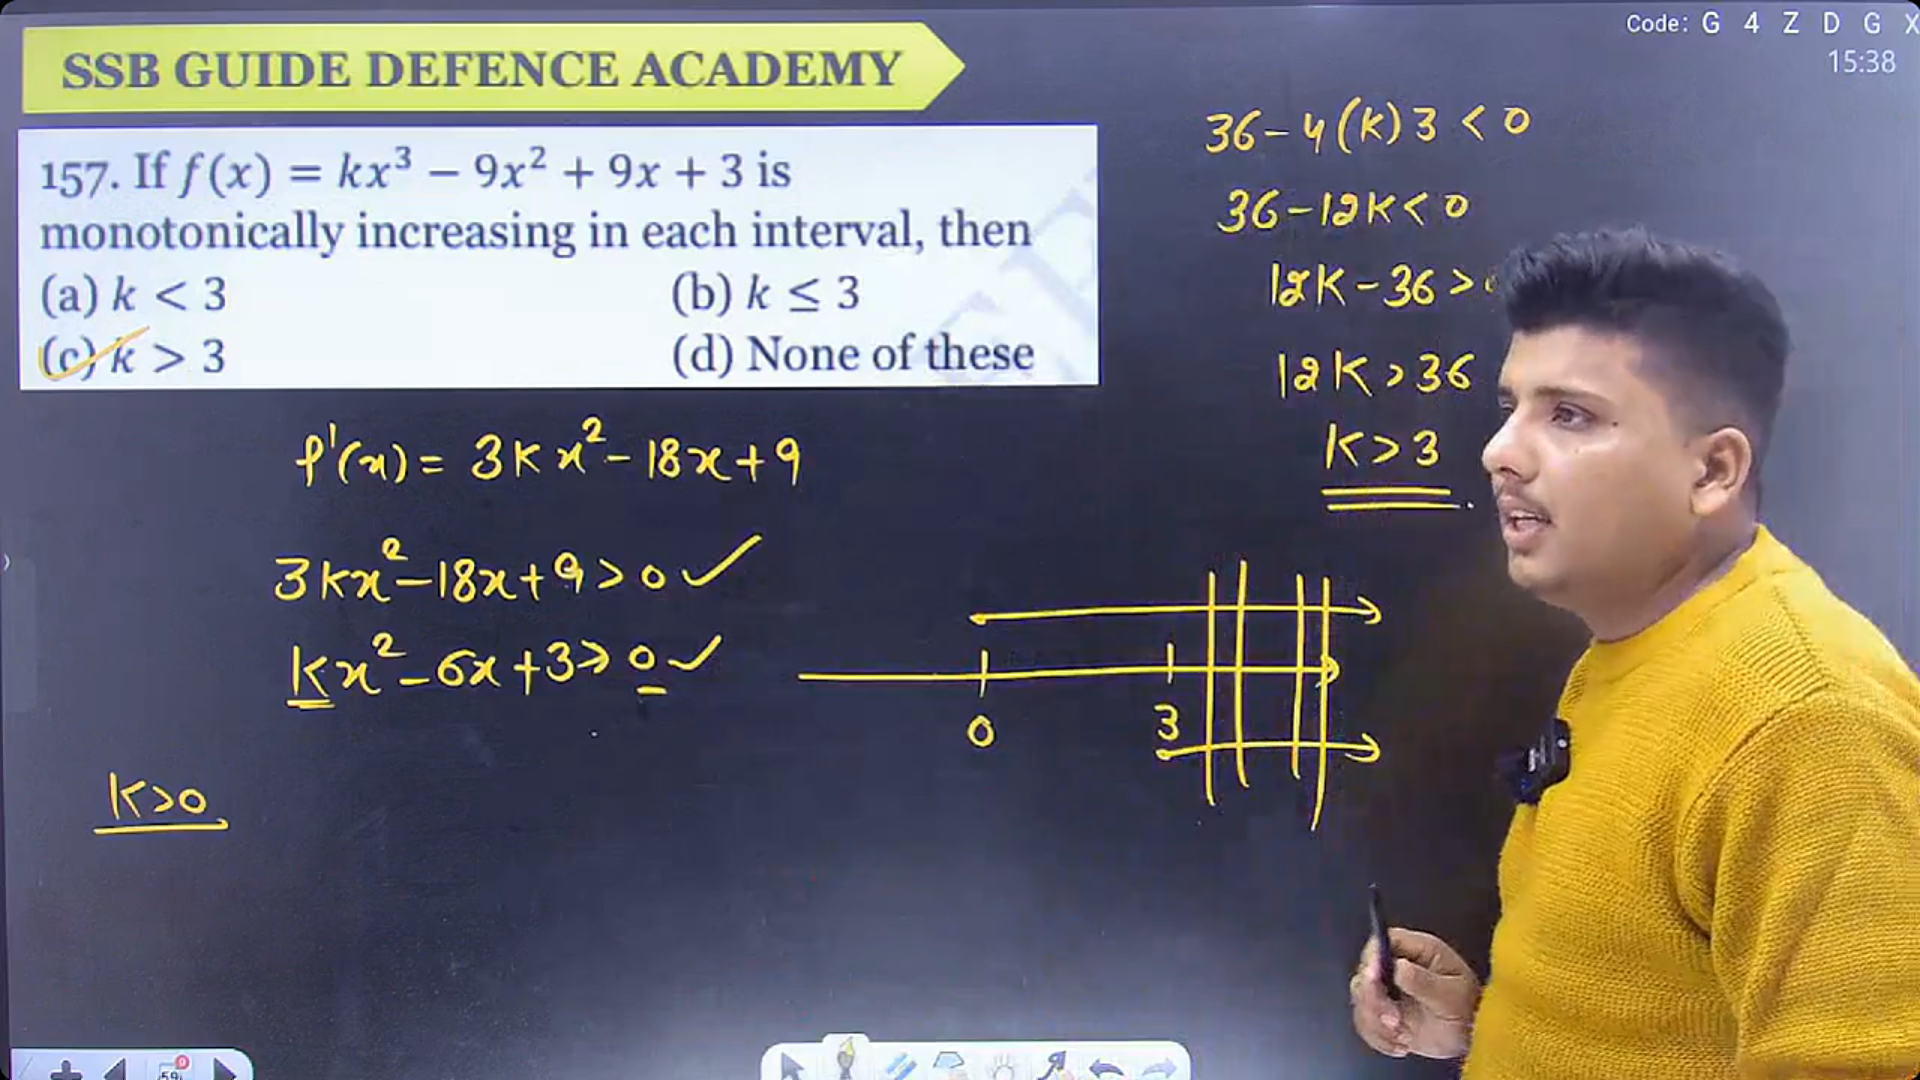 Code: G 4 Z D G X
15:38
SSB GUIDE DEFENCE ACADEMY
157. If f(x) = kx³ − 9x² + 9x + 3 is
monotonically increasing in each interval, then
(a) k < 3
(b) k ≤ 3
(c) k > 3
(d) None of these
f'(x) = 3kx² − 18x + 9
3kx² − 18x + 9 > 0 ✓
kx² − 6x + 3 > 0 ✓
k > 0
36 − 4(k)3 < 0
36 − 12k < 0
12k − 36 >
12k > 36
k > 3
0
3
59
0